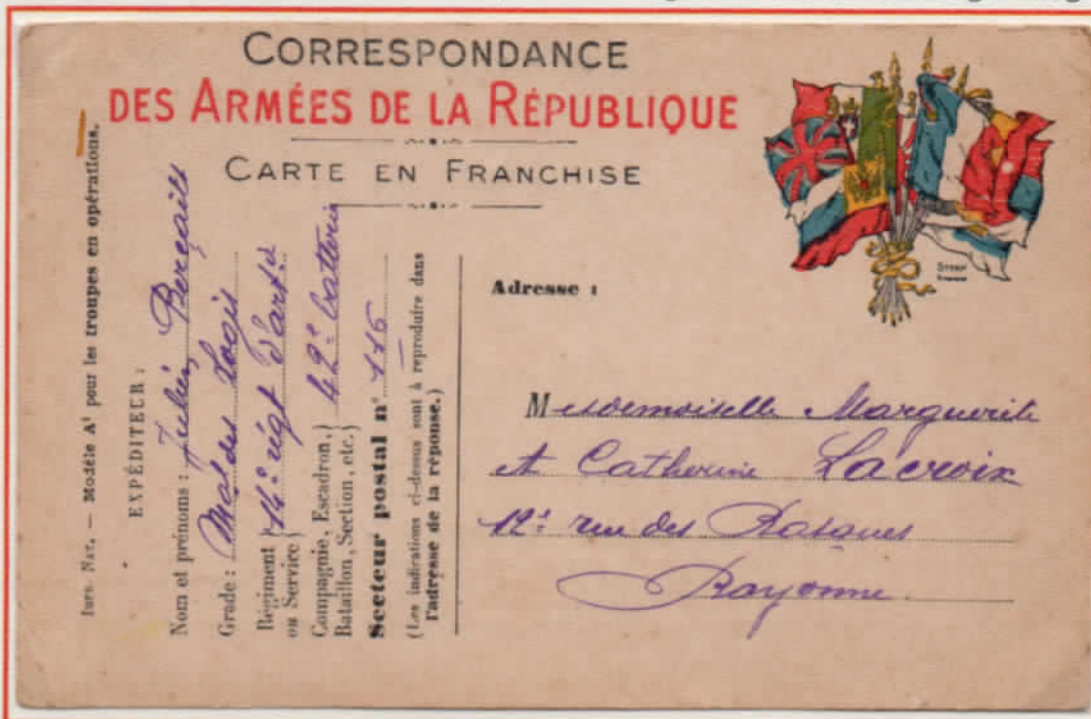 CORRESPONDANCE
DES ARMÉES DE LA RÉPUBLIQUE
CARTE EN FRANCHISE
Impr. Nat. — Modèle A¹ pour les troupes en opérations.
EXPÉDITEUR :
Nom et prénoms : Julien
Grade : Mal des Logis
Régiment ou Service } 14e régt d'artie
Compagnie, Escadron, Bataillon, Section, etc. } 42e batterie
Secteur postal n° 116
(Les indications ci-dessus sont à reproduire dans
l'adresse de la réponse.)
Adresse :
Mesdemoiselle Marguerite
et Catherine Lacroix
12s rue des Basques
Bayonne